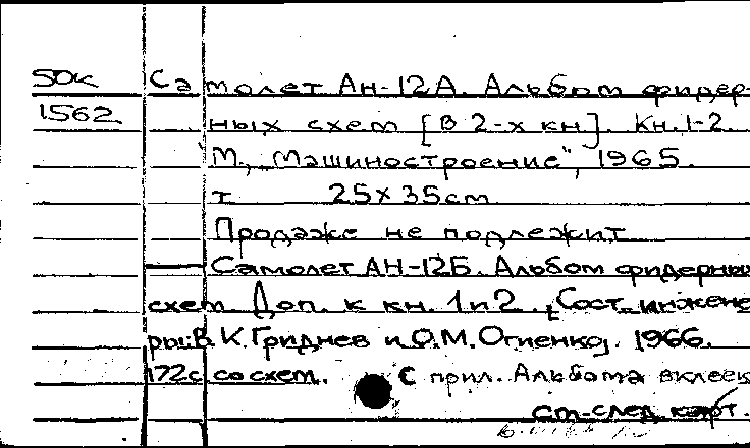 50к Самолет Ан-12А. Альбом фидер-
1562 ных схем [В 2-х кн]. Кн. 1-2.
М., "Машиностроение", 1965.
т 25×35см
Продаже не подлежит
— Самолет АН-12Б. Альбом фидерных
схем Доп. к кн. 1 и 2. [Сост. инжене
ры: В.К. Гриднев и О.М. Огиенко]. 1966.
172с со схем. С прил. Альбома вклеек
см. след карт.